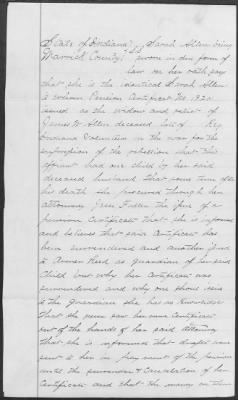 State of Indiana } Sarah Allen being
Warrick County } SS sworn in due form of
law on her oath says
that she is the identical Sarah Allen
to whom Pension Certificate No. 1920
issued as the widow and relict of
James W. Allen deceased late of Reg
Indiana Volunteers in the war for the
suppression of the rebellion that this
affiant had one child by her said
deceased husband that some time after
his death she procured through her
attorney Jesse the of a
pension Certificate that she is informed
and believes that said Certificate has
been surrendered and another issued
to as guardian of her said
Child but why her Certificate was
surrendered and why one should issue
to the Guardian she has no knowledge
that she never saw her said Certificate
out of the hands of her said attorney
that she is informed that drafts were
sent to her in payment of the pension
until the surrender & Cancelation of her
Certificate and that the money on them